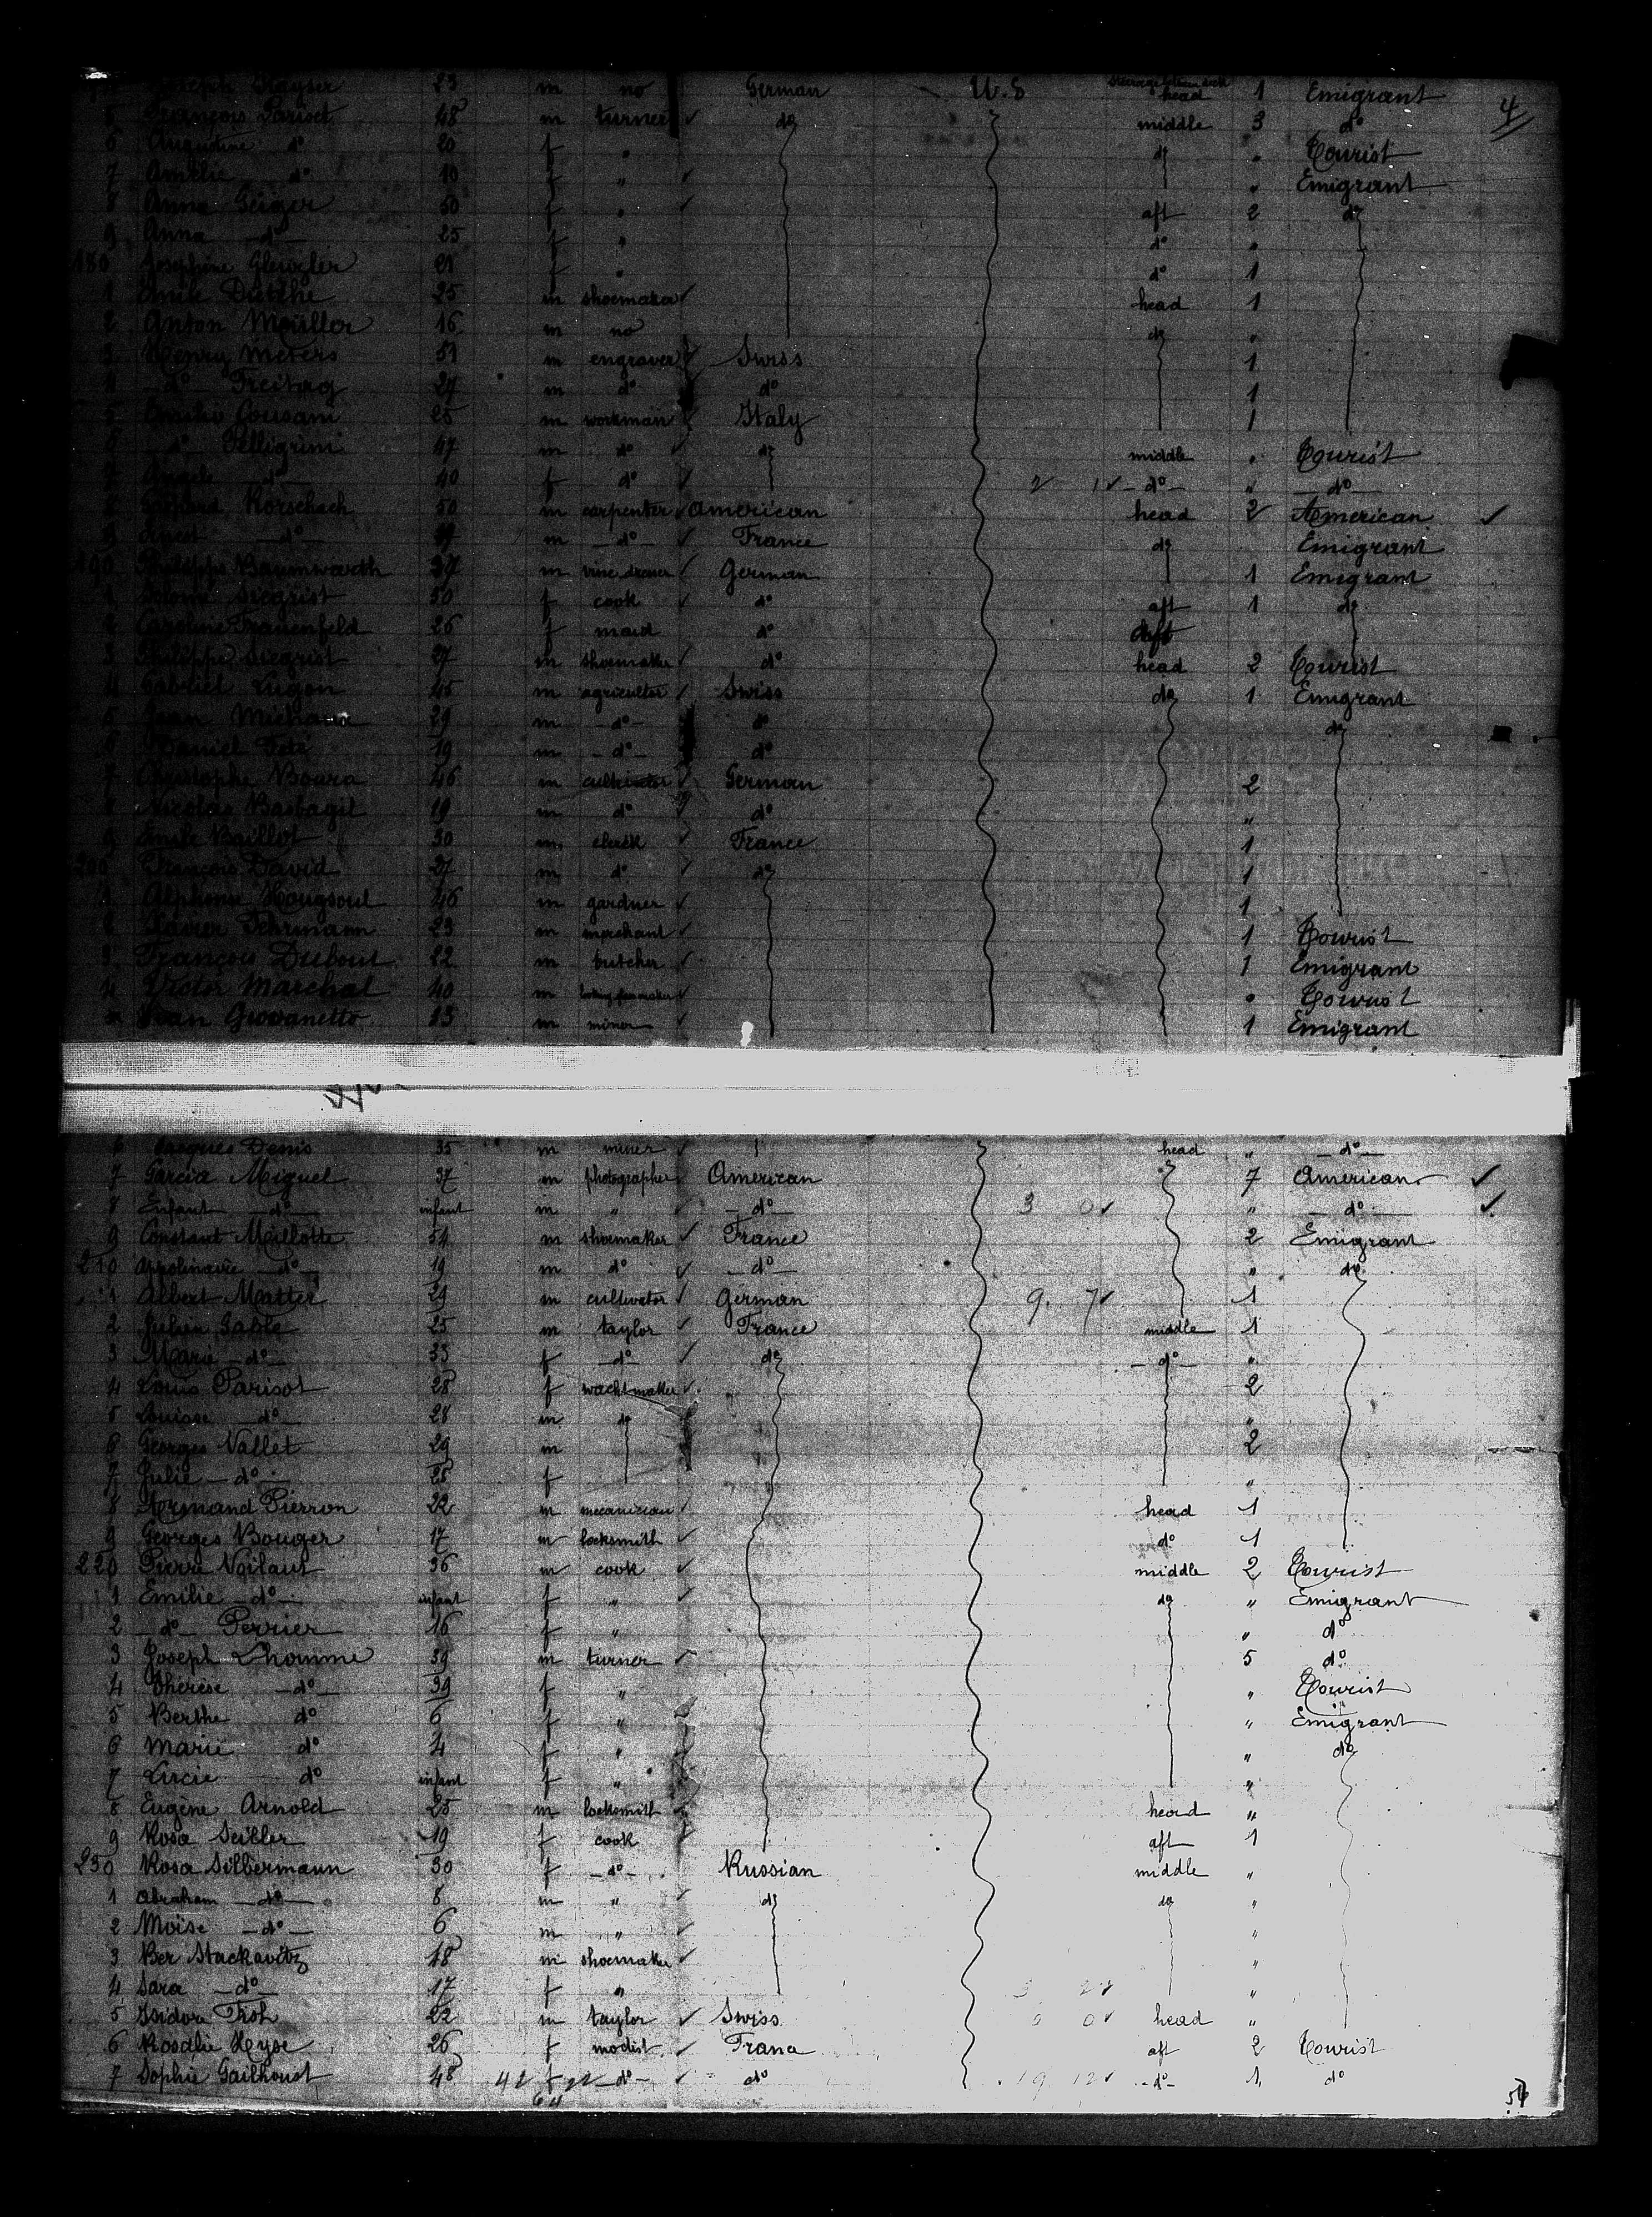 Joseph Kayser 23 m no German U.S Steerage between deck head 1 Emigrant 4
5 François Pariset 48 m turner do middle 3 do
6 Augustine do 20 f " do " Tourist
7 Amélie do 10 f " " Emigrant
8 Anna Geiger 50 f " aft 2 do
9 Anna do 25 f " do "
180 Josephine 21 f " do 1
1 Emile Dutthe 25 m shoemaker head 1
2 Anton Moüller 16 m no do "
3 Henry Meters 51 m engraver Swiss 1
4 do Freitag 27 m do do 1
5 Emilio Cousani 25 m workman Italy 1
6 do Pelligrini 47 m do do middle " Tourist
7 Angele do 40 f do 2 1 do " do
8 Gaspard Rorschach 50 m carpenter American head 2 American
9 Ernest do m do France do Emigrant
190 Philippe Baumwarth 37 m vine dresser German 1 Emigrant
1 Salomé Siegrist 50 f cook do aft 1 do
2 Caroline Frauenfeld 26 f maid do aft
3 Philippe Siegrist 27 m shoemaker do head 2 Tourist
4 Gabriel Lugon 45 m agricultor Swiss do 1 Emigrant
5 Jean Michaux 29 m do do do
6 Daniel Fete 19 m do do
7 Christophe Boura 46 m cultivator German 2
8 Nicolas Basbagil 19 m do do "
9 Emile Baillot 30 m clerk France 1
200 François David 27 m do do 1
1 Alphonse Hougsoul 46 m gardner 1
2 Xavier Fehrmann 23 m merchant 1 Tourist
3 François Dubout 22 m butcher 1 Emigrant
4 Victor Marchal 40 m " Tourist
Jean Giovanetto 23 m miner 1 Emigrant
6 Jacques Denis 35 m miner head " do
7 Garcia Miguel 37 m photographer American 7 American
8 Enfant do infant m " do 3 0 " do
9 Constant Maillotte 54 m shoemaker France 2 Emigrant
210 Appolinaire do 19 m do do " do
1 Albert Matter 29 m cultivator German 9 7 1
2 Julien Sable 25 m taylor France middle 1
3 Marie do 33 f do do do "
4 Louis Parisot 28 f wachtmaker 2
5 Louise do 28 m do "
6 Georges Vallet 29 m 2
7 Julie do 25 f "
8 Armand Pierron 22 m mecanician head 1
9 Georges Bouger 17 m locksmith do 1
220 Pierre Voilaut 36 m cook middle 2 Tourist
1 Emilie do infant f " do " Emigrant
2 do Perrier 16 f " " do
3 Joseph Lhomme 39 m turner 5 do
4 Therese do 39 f " " Tourist
5 Berthe do 6 f " " Emigrant
6 Marie do 4 f " " do
7 Lucie do infant f " "
8 Eugène Arnold 25 m locksmith head "
9 Rosa Seiller 19 f cook aft 1
230 Rosa Silbermann 30 f do Russian middle "
1 Abraham do 8 m " do do "
2 Moïse do 6 m " "
3 Ber Stackavitz 18 m shoemaker "
4 Sara do 17 f " "
5 Isidore Troh 22 m taylor Swiss 0 0 head "
6 Rosalie Heyse 26 f modist France aft 2 Tourist
7 Sophie Gailhoust 48 42 f 22 do do 19 12 do 1 do
64